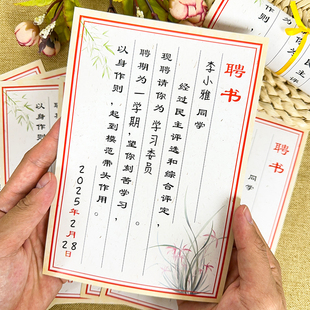 聘书
李小雅同学
经过民主评选和综合评定,
现聘请你为学习委员
聘期为一学期,望你刻苦学习,
以身作则,起到模范带头作用。
2025年2月28日
以身作则
聘书
同学
以身作则,